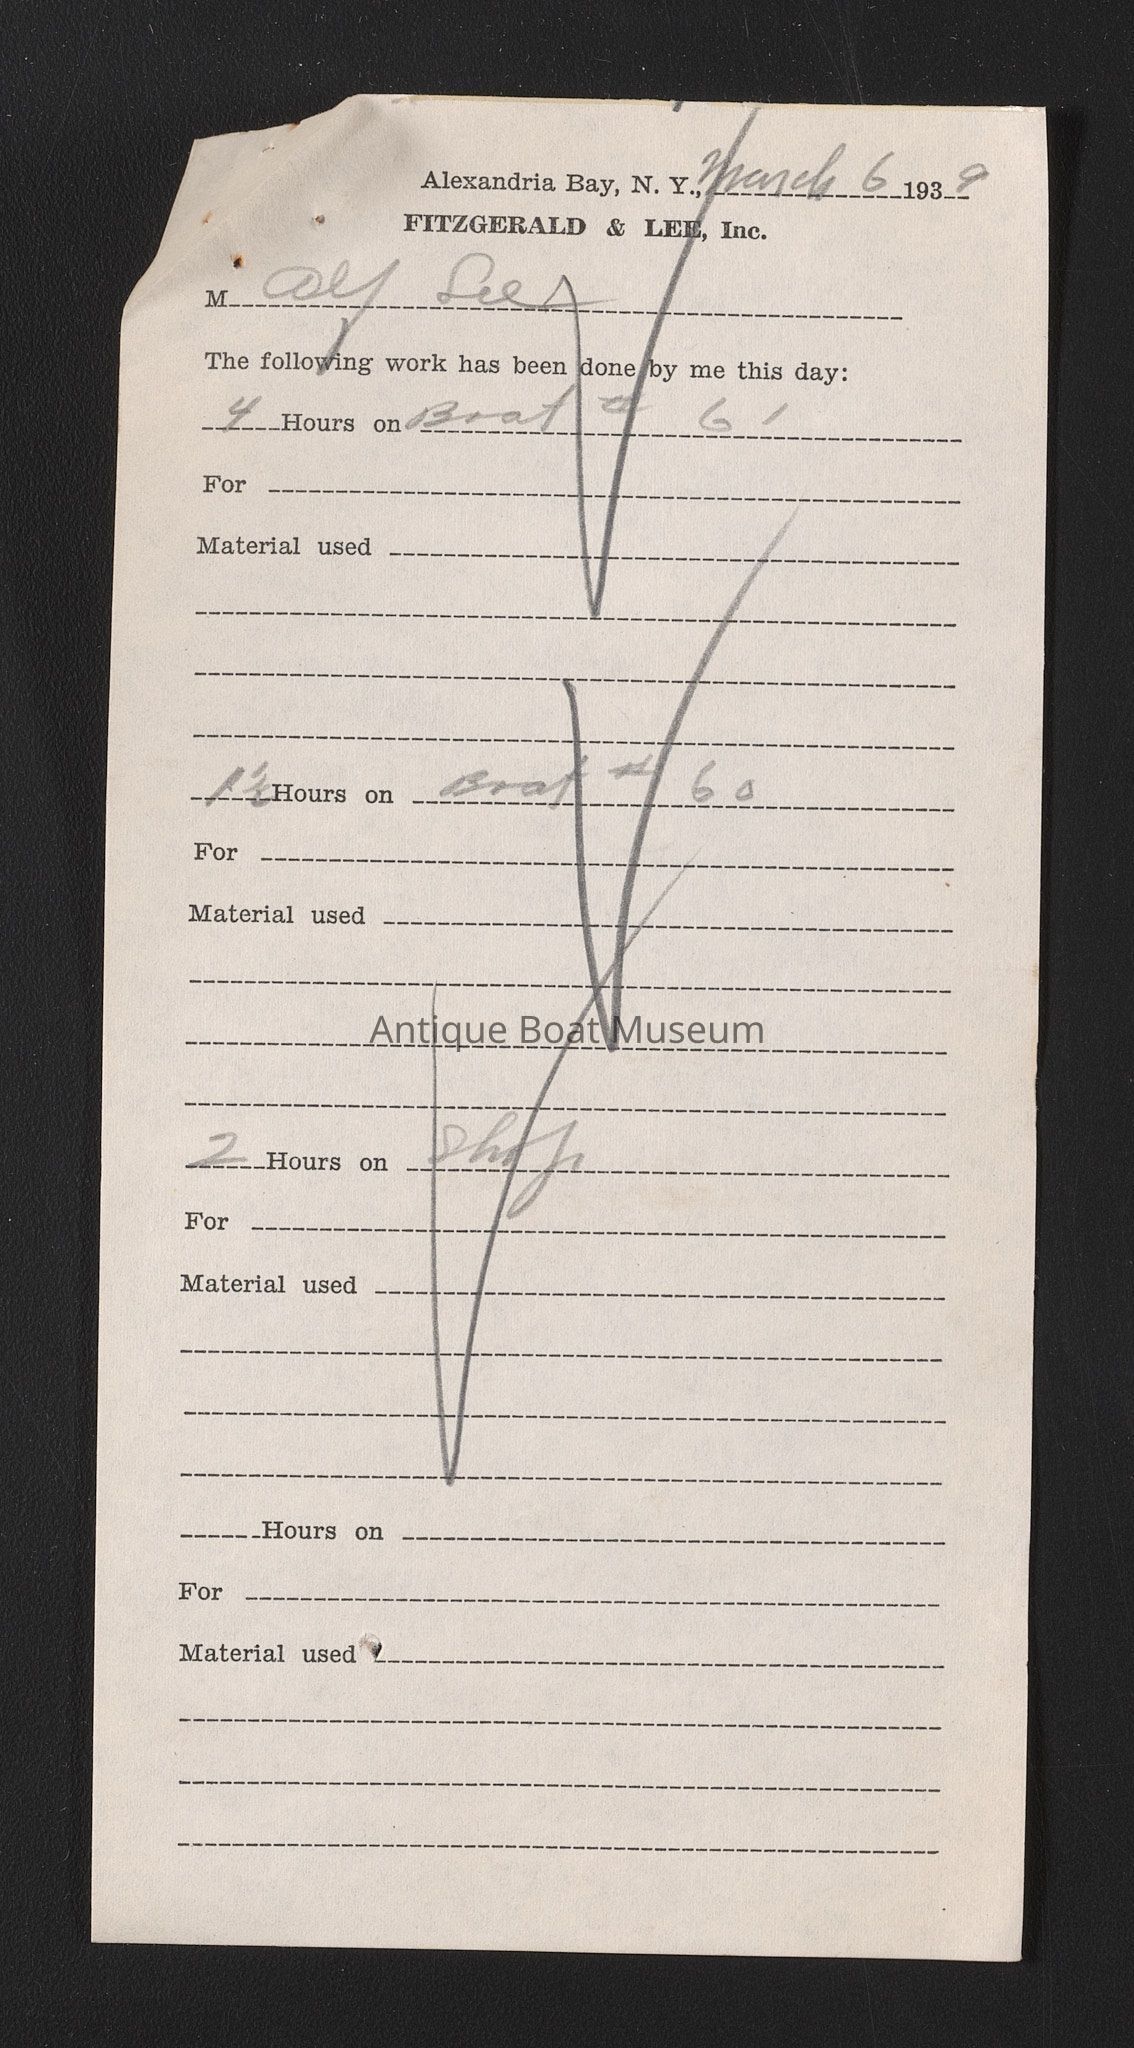 Alexandria Bay, N. Y., March 6 1939
FITZGERALD & LEE, Inc.
M Alf Lee
The following work has been done by me this day:
4 Hours on Boat # 61
For
Material used
1 1/2 Hours on Boat # 60
For
Material used
Antique Boat Museum
2 Hours on Shop
For
Material used
Hours on
For
Material used